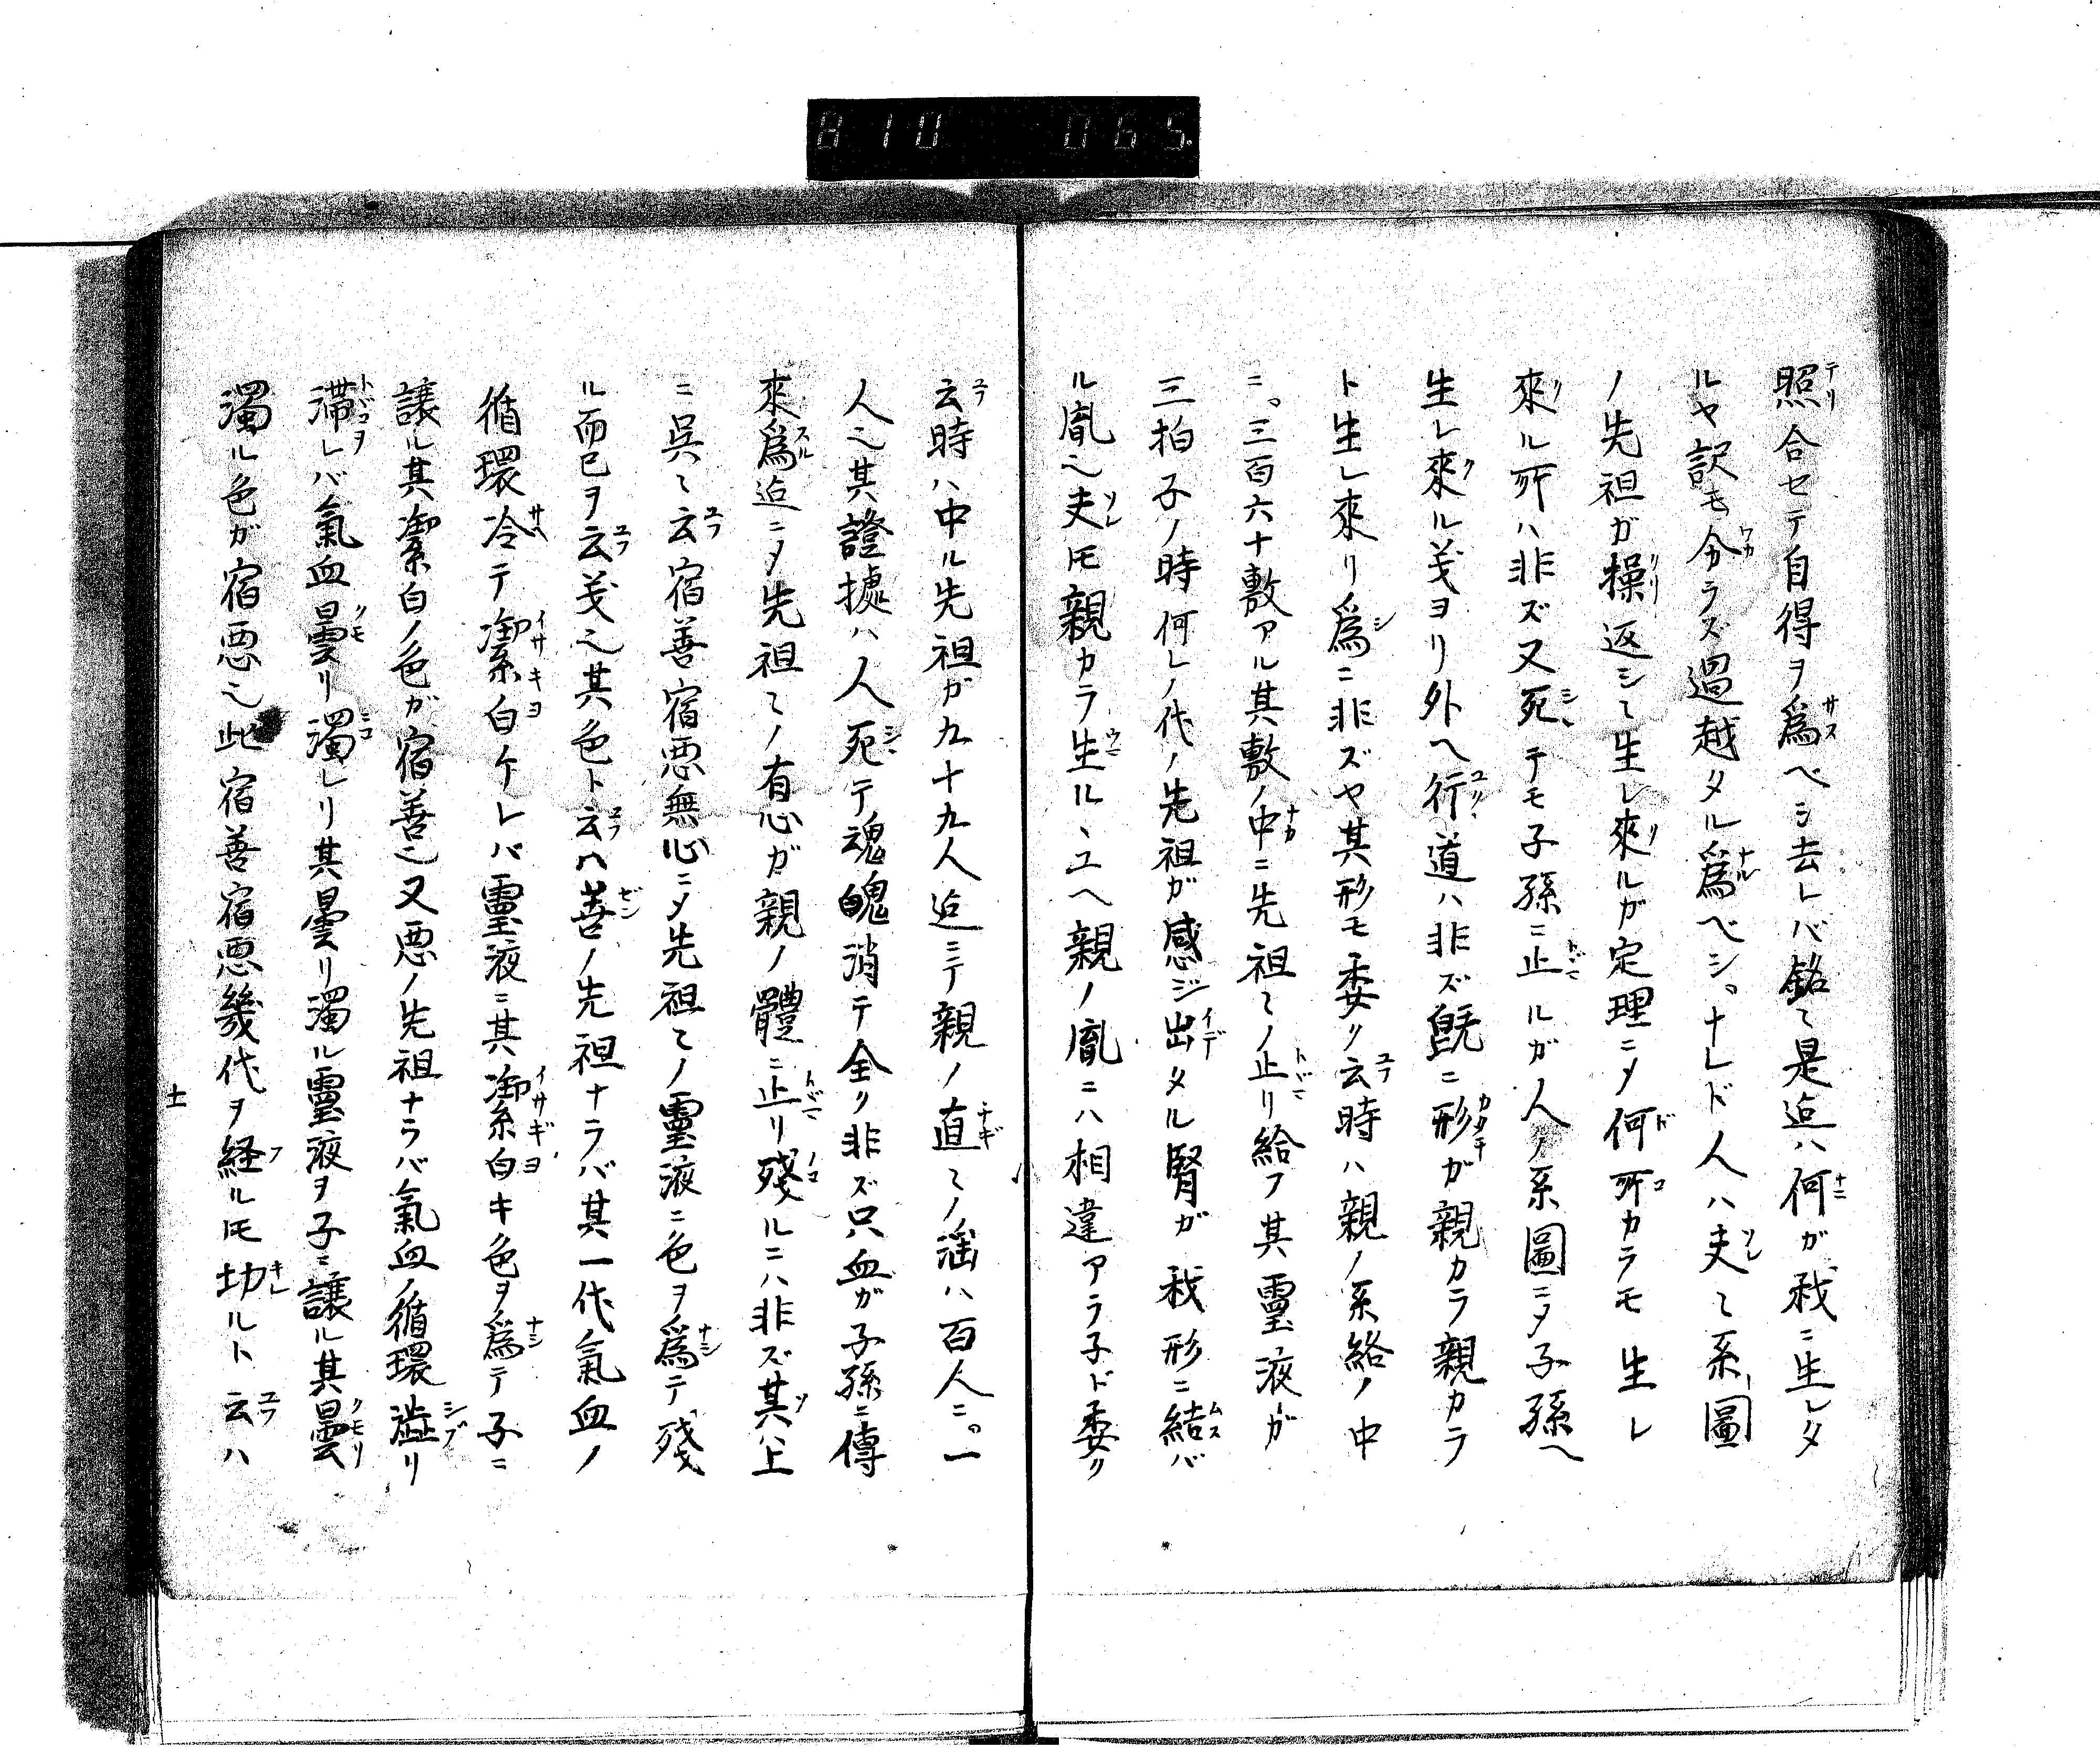 810 065.
照合セテ自得ヲ爲ベシ去レバ銘〻是迠ハ何ガ我ニ生レタ
ルヤ訳モ分ラズ過越タル爲ベシ。ナレド人ハ夫〻系圖
ノ先祖ガ操返シ〻生レ來ルガ定理ニメ何所カラモ生レ
來ル所ハ非ズ又死テモ子孫ニ止ルガ人ノ系圖ニメ子孫ヘ
生レ來ル茂ヨリ外ヘ行道ハ非ズ既ニ形ガ親カラ親カラ
ト生レ來リノ爲ニ非ズヤ其形モ委ク云時ハ親ノ系絡ノ中
ニ。三百六十敷アル其敷ノ中ニ先祖〻ノ止リ給フ其靈液ガ
三拍子ノ時何レノ代ノ先祖ガ感ジ出タル腎ガ我形ニ結バ
ル胤𠃋夫𪜈親カラ生ル丶ユヘ親ノ胤ニハ相違アラ子ド委ク
云時ハ中ル先祖ガ九十九人迠ミテ親ノ直〻ノ滛ハ百人ニ。一
人𠃋其證據ハ人死テ魂魄消テ全ク非ズ只血ガ子孫ニ傳
來爲迠ニメ先祖〻ノ有心ガ親ノ體ニ止リ殘ルニハ非ズ其ハ上
ニ呉〻云宿善宿悪無心ニメ先祖〻ノ靈液ニ色ヲ爲テ殘
ル而已ヲ云茂𠃋其色ト云ハ善ノ先祖ナラバ其一代氣血ノ
循環冷テ潔白ケレバ靈液ニ其潔白キ色ヲ爲テ子ニ
譲ル其潔白ノ色ガ宿善𠃋又悪ノ先祖ナラバ氣血ノ循環澁リ
滯レバ氣血曇リ濁レリ其曇リ濁ル靈液ヲ子ニ譲ル其曇
濁ル色ガ宿悪𠃋此宿善宿悪幾代ヲ経ル𪜈切ルト云ハ
十一